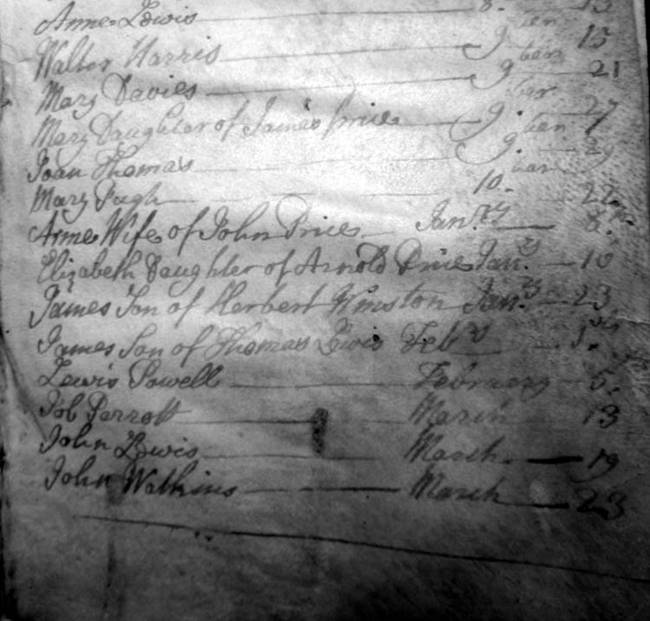 Anne Lewis 8. 13
Walter Harris 9.ber 15
Mary Davies 9.ber 21
Mary Daughter of James Price 9.ber 27
Joan Thomas 9.ber 29
Mary Pugh 10.ber 22
Anne Wife of John Price Jan.ry 8.
Elizabeth Daughter of Arnold Price Jan.ry 10
James Son of Herbert Winston Jan.ry 23
James Son of Thomas Lewis Feb.ry 1.st
Lewis Powell February 5.
Job Perrott March 13
John Lewis March 19
John Watkins March 23